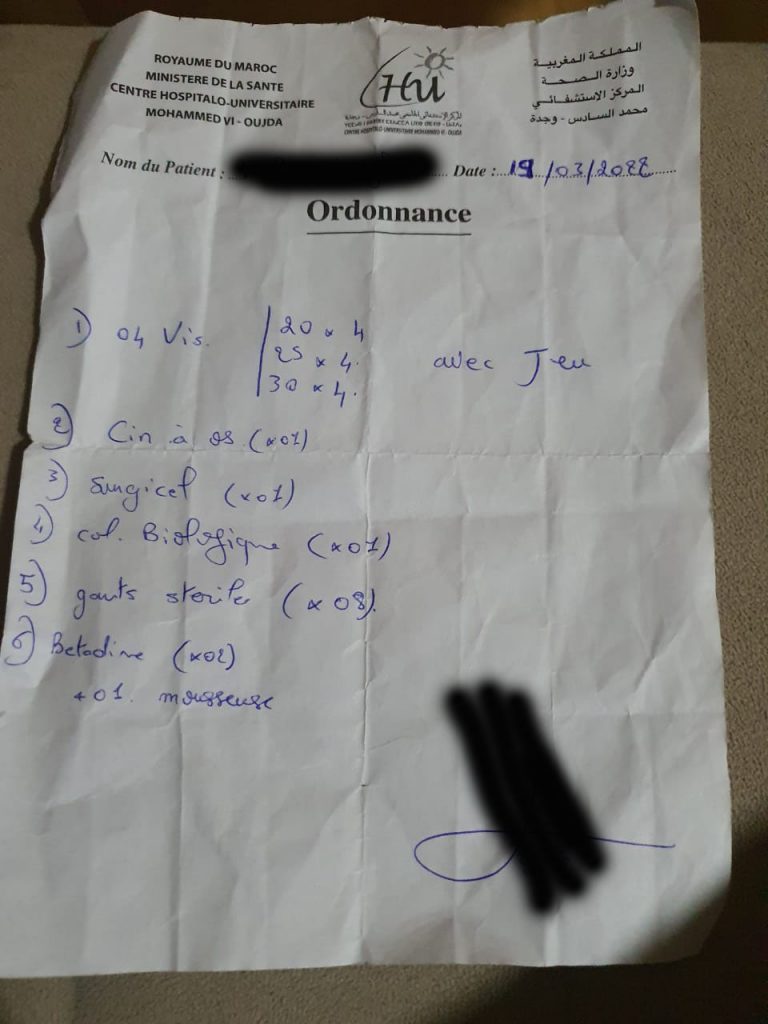 ROYAUME DU MAROC
MINISTERE DE LA SANTE
CENTRE HOSPITALO-UNIVERSITAIRE
MOHAMMED VI - OUJDA
CHU
CENTRE HOSPITALIER UNIVERSITAIRE MOHAMMED VI - OUJDA
المملكة المغربية
وزارة الصحة
المركز الاستشفائي
محمد السادس - وجدة
Nom du Patient :
Date : 19/03/2022
Ordonnance
1) 04 Vis. 20 x 4
25 x 4.
30 x 4.
avec Jeu
2) Cin à os (x01)
3) Surgicel (x01)
4) col. Biologique (x01)
5) gants sterile (x 08).
6) Betadine (x02)
+ 01. mousseuse